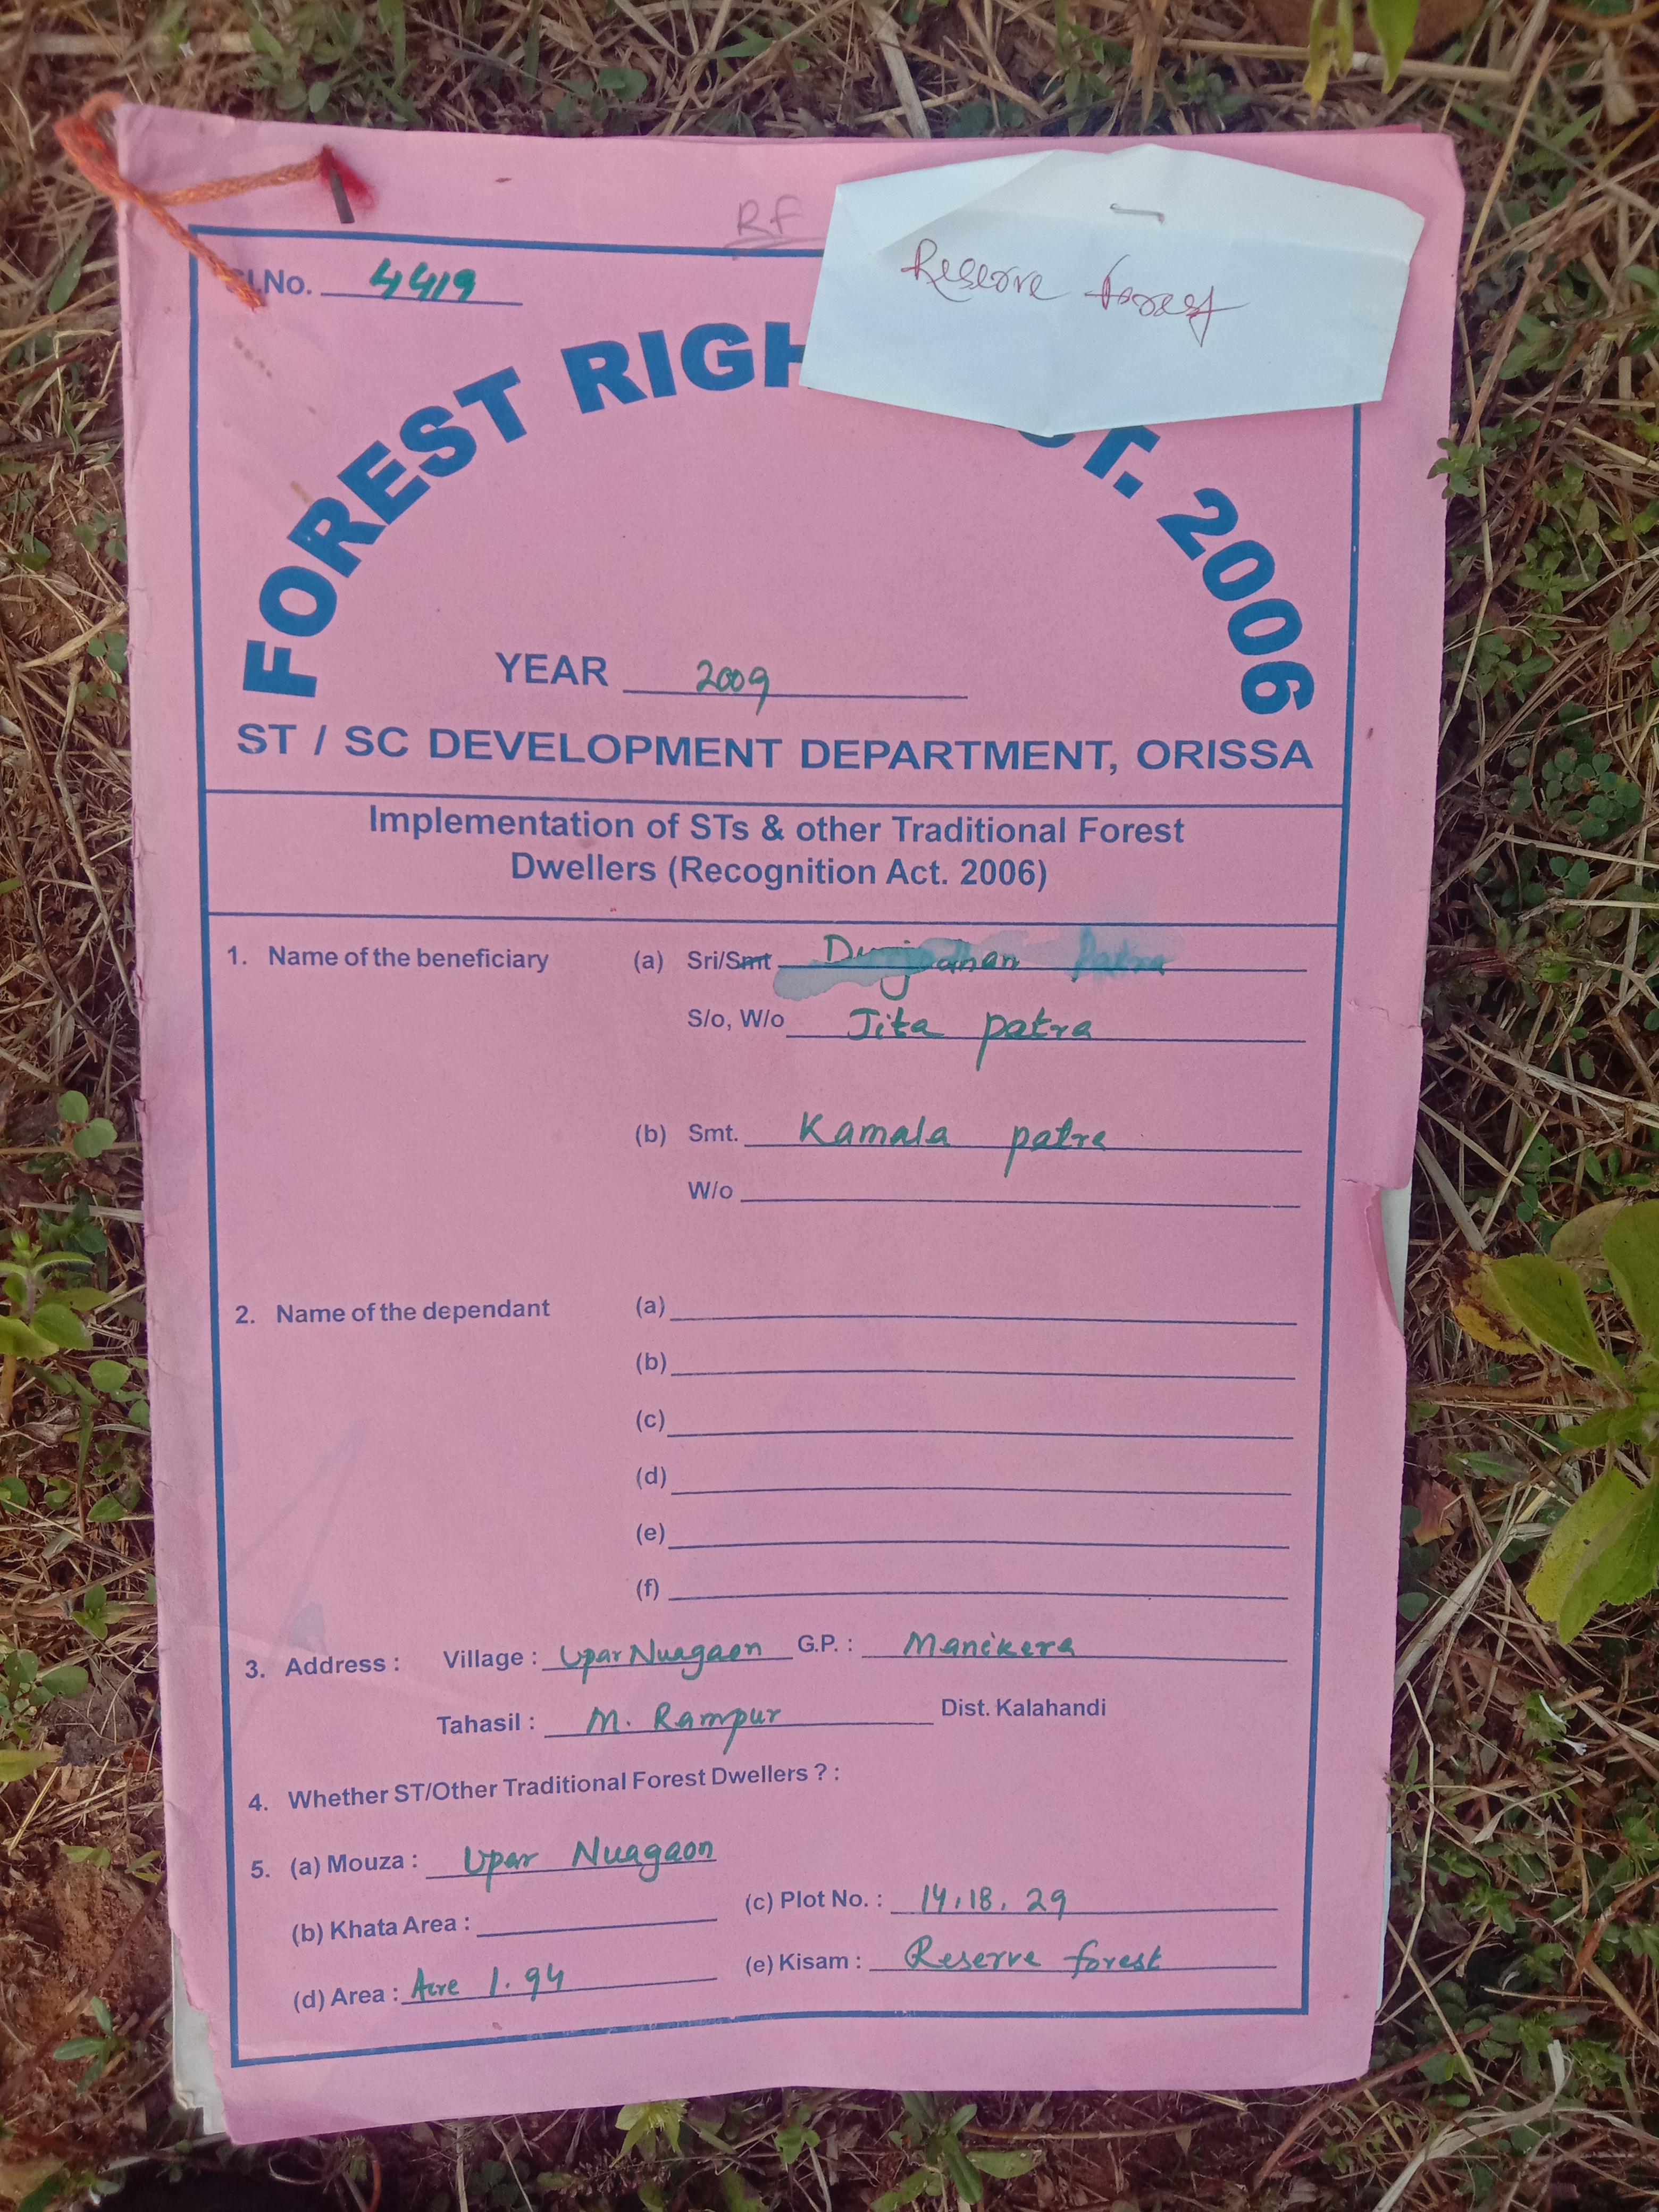 RF
Reserve forest
Sl.No. 4419
FOREST RIGH CT. 2006
YEAR 2009
ST / SC DEVELOPMENT DEPARTMENT, ORISSA
Implementation of STs & other Traditional Forest
Dwellers (Recognition Act. 2006)
1. Name of the beneficiary (a) Sri/Smt Patra
S/o, W/o Jita patra
(b) Smt. Kamala patra
W/o
2. Name of the dependant (a)
(b)
(c)
(d)
(e)
(f)
3. Address : Village : Upar Nuagaon G.P. : Manikera
Tahasil : M. Rampur Dist. Kalahandi
4. Whether ST/Other Traditional Forest Dwellers ? :
5. (a) Mouza : Upar Nuagaon
(b) Khata Area : (c) Plot No. : 14, 18, 29
(d) Area : Acre 1.94 (e) Kisam : Reserve forest